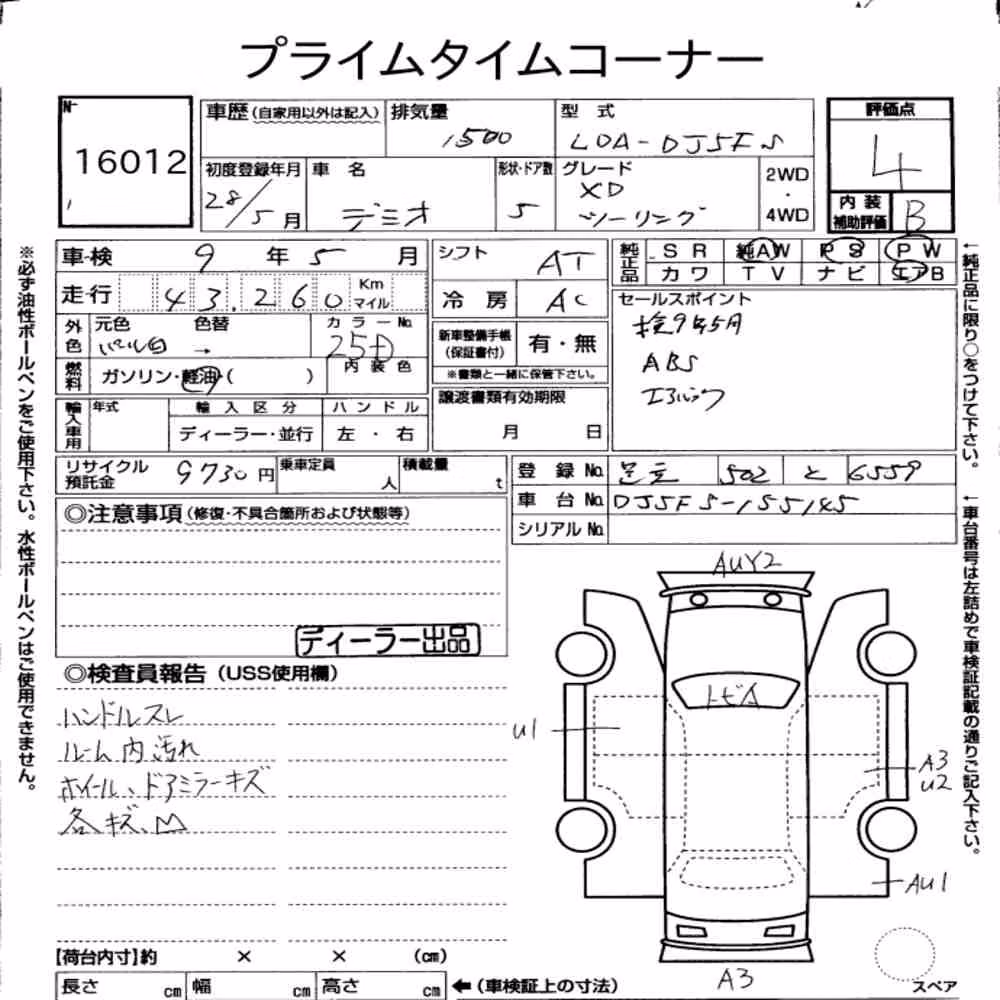 プライムタイムコーナー
No
16012
車歴(自家用以外は記入) 排気量 1500 型式 LDA-DJ5FS
評価点 4
初度登録年月 28/5月 車名 デミオ 形状・ドア数 5 グレード XD ツーリング 2WD・4WD
内装補助評価 B
車検 9年5月 シフト AT
純正品 SR 純AW PS PW
カワ TV ナビ エアB
走行 43,260 Km マイル 冷房 AC
セールスポイント
検9年5月
ABS
エアバック
外色 元色 パール白 色替 → カラーNo. 25D
新車整備手帳(保証書付) 有・無
※書類と一緒に保管下さい。
燃料 ガソリン・軽油( ) 内装色
譲渡書類有効期限
月 日
輸入車用 年式 輸入区分 ハンドル
ディーラー・並行 左・右
リサイクル預託金 9730円 乗車定員 人 積載量 t
登録No. 足立 502 と 6559
車台No. DJ5FS-155145
シリアルNo.
◎注意事項(修復・不具合箇所および状態等)
ディーラー出品
◎検査員報告(USS使用欄)
ハンドルスレ
ルーム内汚れ
ホイール、ドアミラーキズ
各キズ、凹
AUY2
トビA
U1
A3
U2
AU1
A3
スペア
【荷台内寸】約 × × (cm)
長さ cm 幅 cm 高さ cm ←(車検証上の寸法)
※必ず油性ボールペンをご使用下さい。水性ボールペンはご使用できません。
←純正品に限り○をつけて下さい。
←車台番号は左詰めで車検証記載の通りご記入下さい。